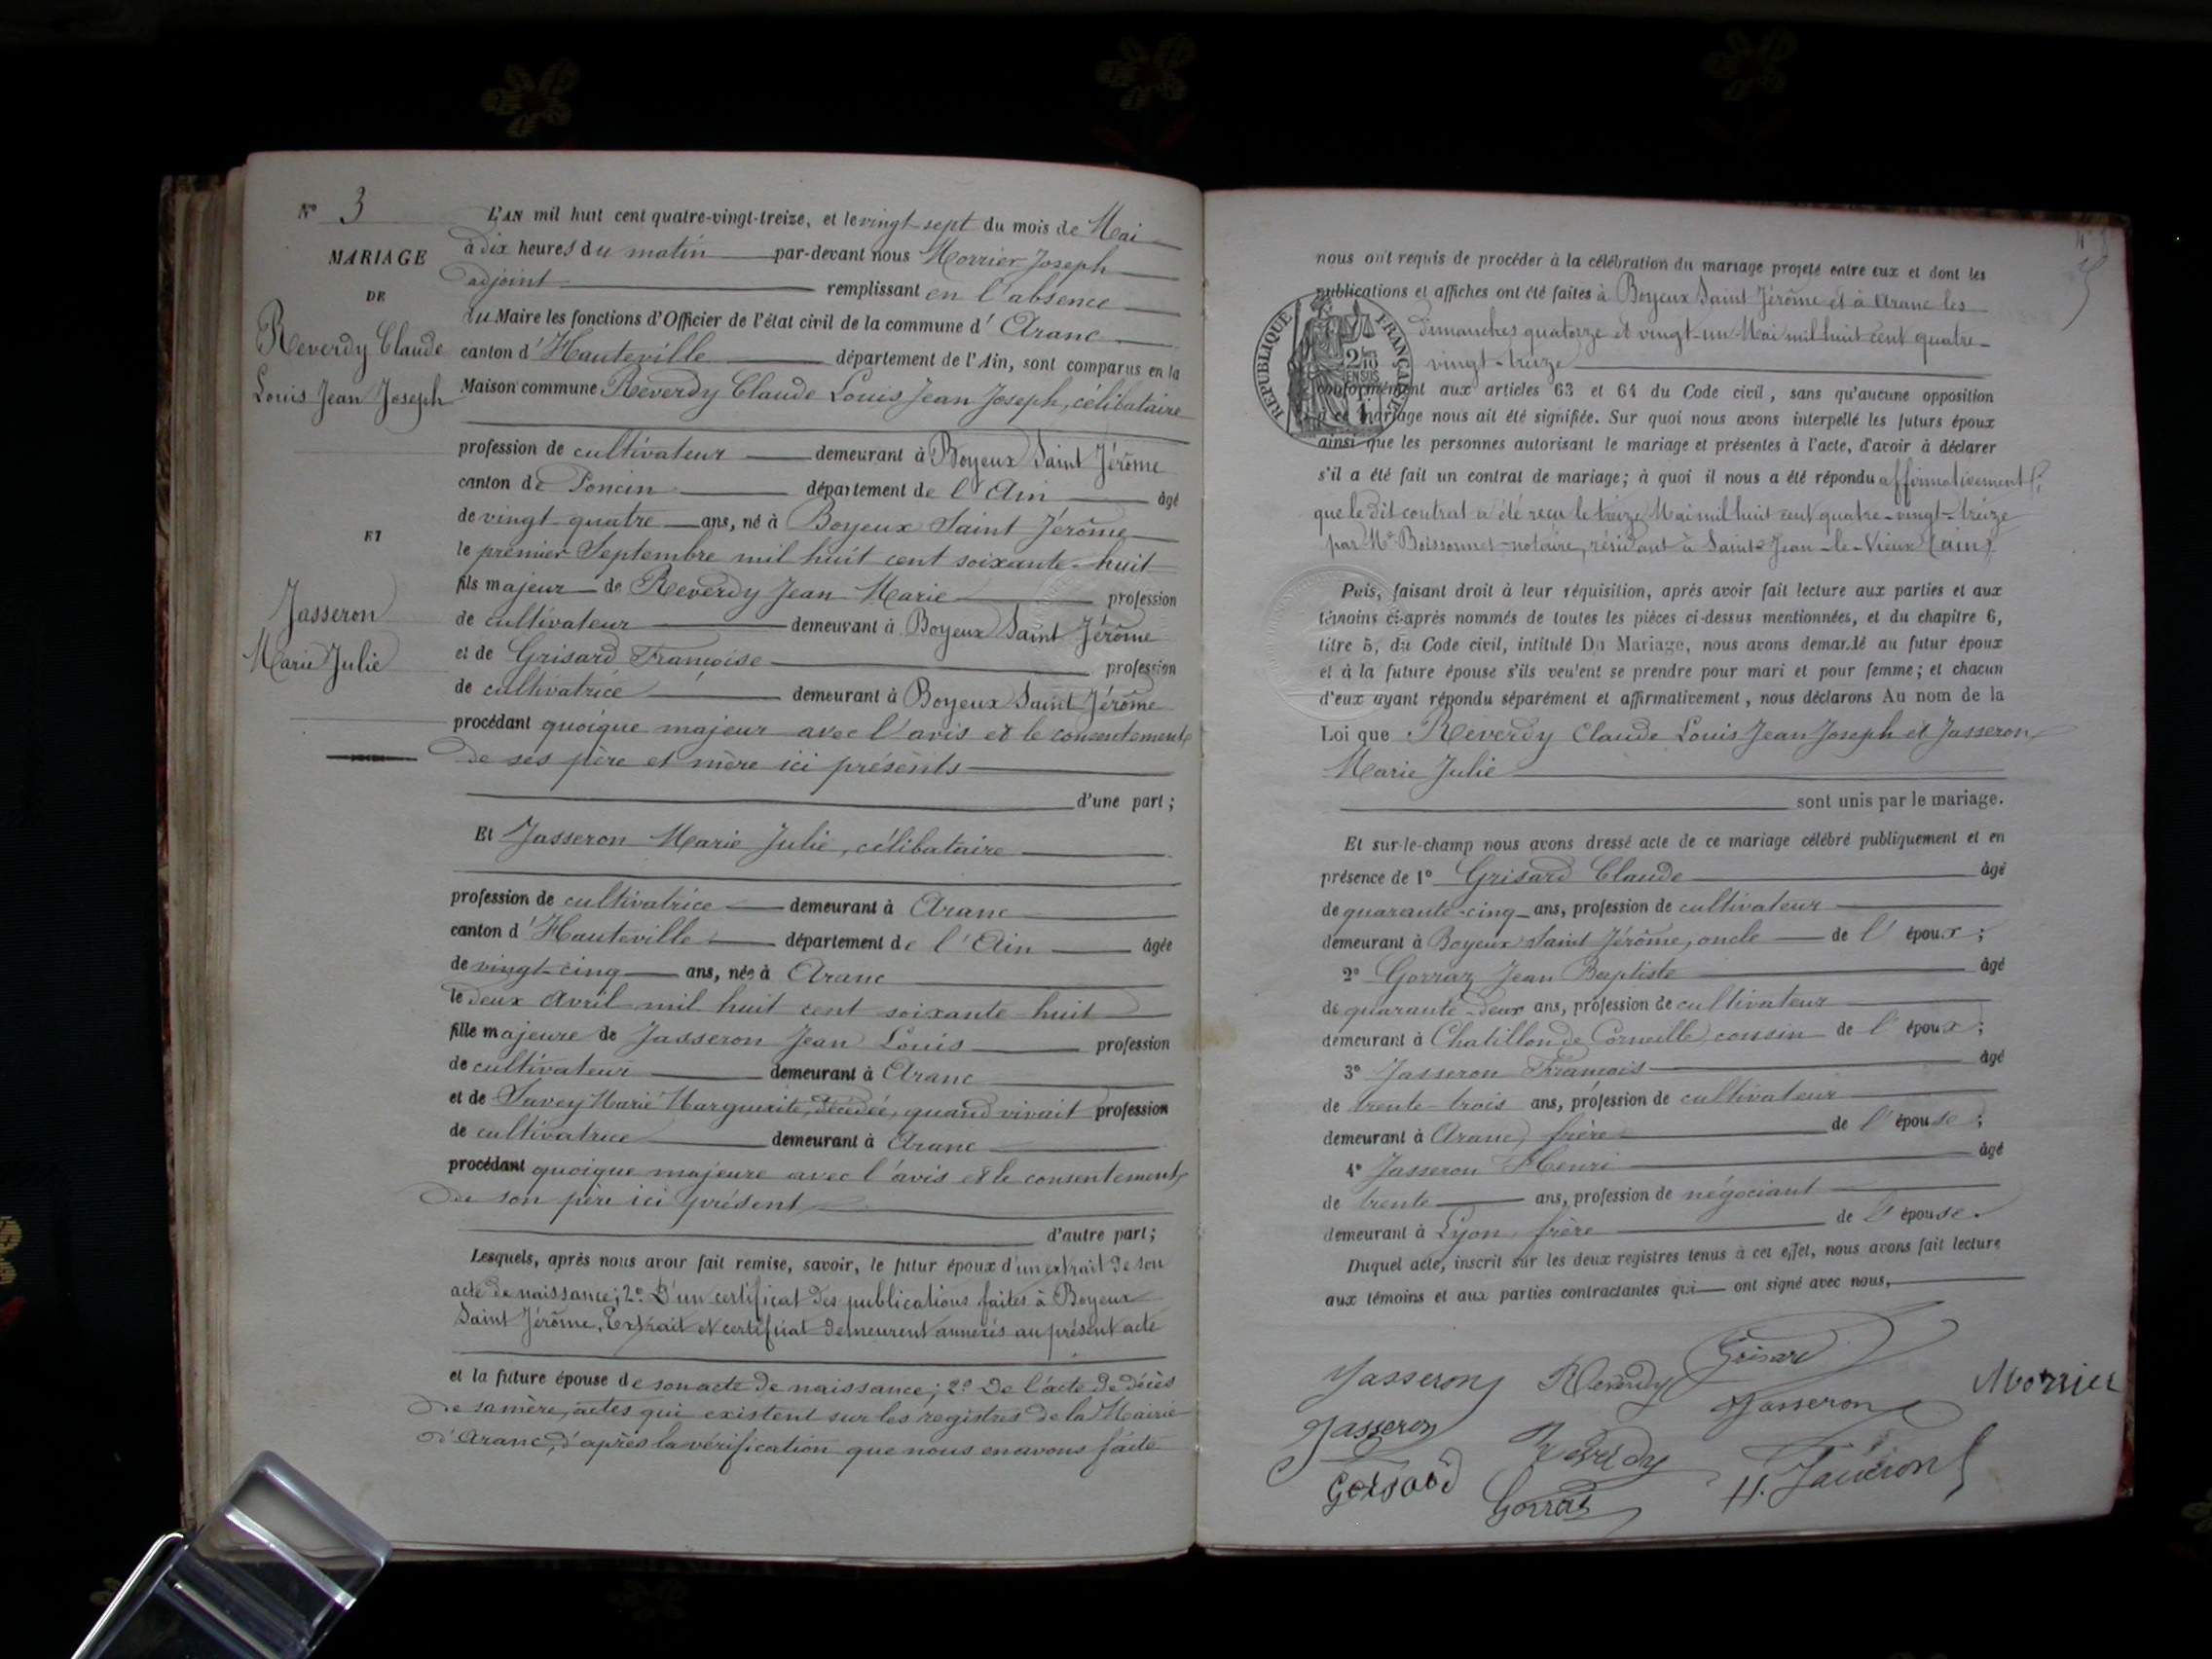 N° 3
MARIAGE
DE
Reverdy Claude
Louis Jean Joseph
ET
Jasseron
Marie Julie
L'AN mil huit cent quatre-vingt-treize, et le vingt-sept du mois de Mai
à dix heures du matin par-devant nous Morrier Joseph
adjoint remplissant en l'absence
du Maire les fonctions d'Officier de l'état civil de la commune d'Aranc
canton d'Hauteville département de l'Ain, sont comparus en la
Maison commune Reverdy Claude Louis Jean Joseph, célibataire
profession de cultivateur demeurant à Boyeux Saint Jérôme
canton de Poncin département de l'Ain âgé
de vingt-quatre ans, né à Boyeux Saint Jérôme
le premier Septembre mil huit cent soixante-huit
fils majeur de Reverdy Jean Marie profession
de cultivateur demeurant à Boyeux Saint Jérôme
et de Grisard Françoise profession
de cultivatrice demeurant à Boyeux Saint Jérôme
procédant quoique majeur avec l'avis et le consentement
de ses père et mère ici présents
d'une part;
Et Jasseron Marie Julie, célibataire
profession de cultivatrice demeurant à Aranc
canton d'Hauteville département de l'Ain âgée
de vingt-cinq ans, née à Aranc
le deux Avril mil huit cent soixante-huit
fille majeure de Jasseron Jean Louis profession
de cultivateur demeurant à Aranc
et de Savey Marie Marguerite, décédée, quand vivait profession
de cultivatrice demeurant à Aranc
procédant quoique majeure avec l'avis et le consentement
de son père ici présent
d'autre part;
Lesquels, après nous avoir fait remise, savoir, le futur époux d'un extrait de son
acte de naissance; 2° D'un certificat des publications faites à Boyeux
Saint Jérôme, Extrait et certificat demeurent annexés au présent acte
et la future épouse de son acte de naissance; 2° De l'acte de décès
de sa mère, actes qui existent sur les registres de la Mairie
d'Aranc, d'après la vérification que nous en avons faite
nous ont requis de procéder à la célébration du mariage projeté entre eux et dont les
publications et affiches ont été faites à Boyeux Saint Jérôme et à Aranc les
dimanches quatorze et vingt-un Mai mil huit cent quatre-
vingt-treize
conformément aux articles 63 et 64 du Code civil, sans qu'aucune opposition
à ce mariage nous ait été signifiée. Sur quoi nous avons interpellé les futurs époux
ainsi que les personnes autorisant le mariage et présentes à l'acte, d'avoir à déclarer
s'il a été fait un contrat de mariage; à quoi il nous a été répondu affirmativement &
que le dit contrat a été reçu le treize Mai mil huit cent quatre-vingt-treize
par Me Boissonnet notaire, résidant à Saint-Jean-le-Vieux (ain)
RÉPUBLIQUE FRANÇAISE
2 fcs
6/10
EN SUS
Puis, faisant droit à leur réquisition, après avoir fait lecture aux parties et aux
témoins ci-après nommés de toutes les pièces ci-dessus mentionnées, et du chapitre 6,
titre 5, du Code civil, intitulé Du Mariage, nous avons demandé au futur époux
et à la future épouse s'ils veulent se prendre pour mari et pour femme; et chacun
d'eux ayant répondu séparément et affirmativement, nous déclarons Au nom de la
Loi que Reverdy Claude Louis Jean Joseph et Jasseron
Marie Julie
sont unis par le mariage.
Et sur-le-champ nous avons dressé acte de ce mariage célébré publiquement et en
présence de 1° Grisard Claude âgé
de quarante-cinq ans, profession de cultivateur
demeurant à Boyeux Saint Jérôme, oncle de l'époux;
2° Gorraz Jean Baptiste âgé
de quarante-deux ans, profession de cultivateur
demeurant à Chatillon de Corneille, cousin de l'époux;
3° Jasseron François âgé
de trente-trois ans, profession de cultivateur
demeurant à Aranc, frère de l'épouse;
4° Jasseron Henri âgé
de trente ans, profession de négociant
demeurant à Lyon, frère de l'épouse.
Duquel acte, inscrit sur les deux registres tenus à cet effet, nous avons fait lecture
aux témoins et aux parties contractantes qui ont signé avec nous,
Jasseron Reverdy Grisard
Jasseron Morrier
Jasseron Reverdy
Grisard Gorraz H. Jasseron